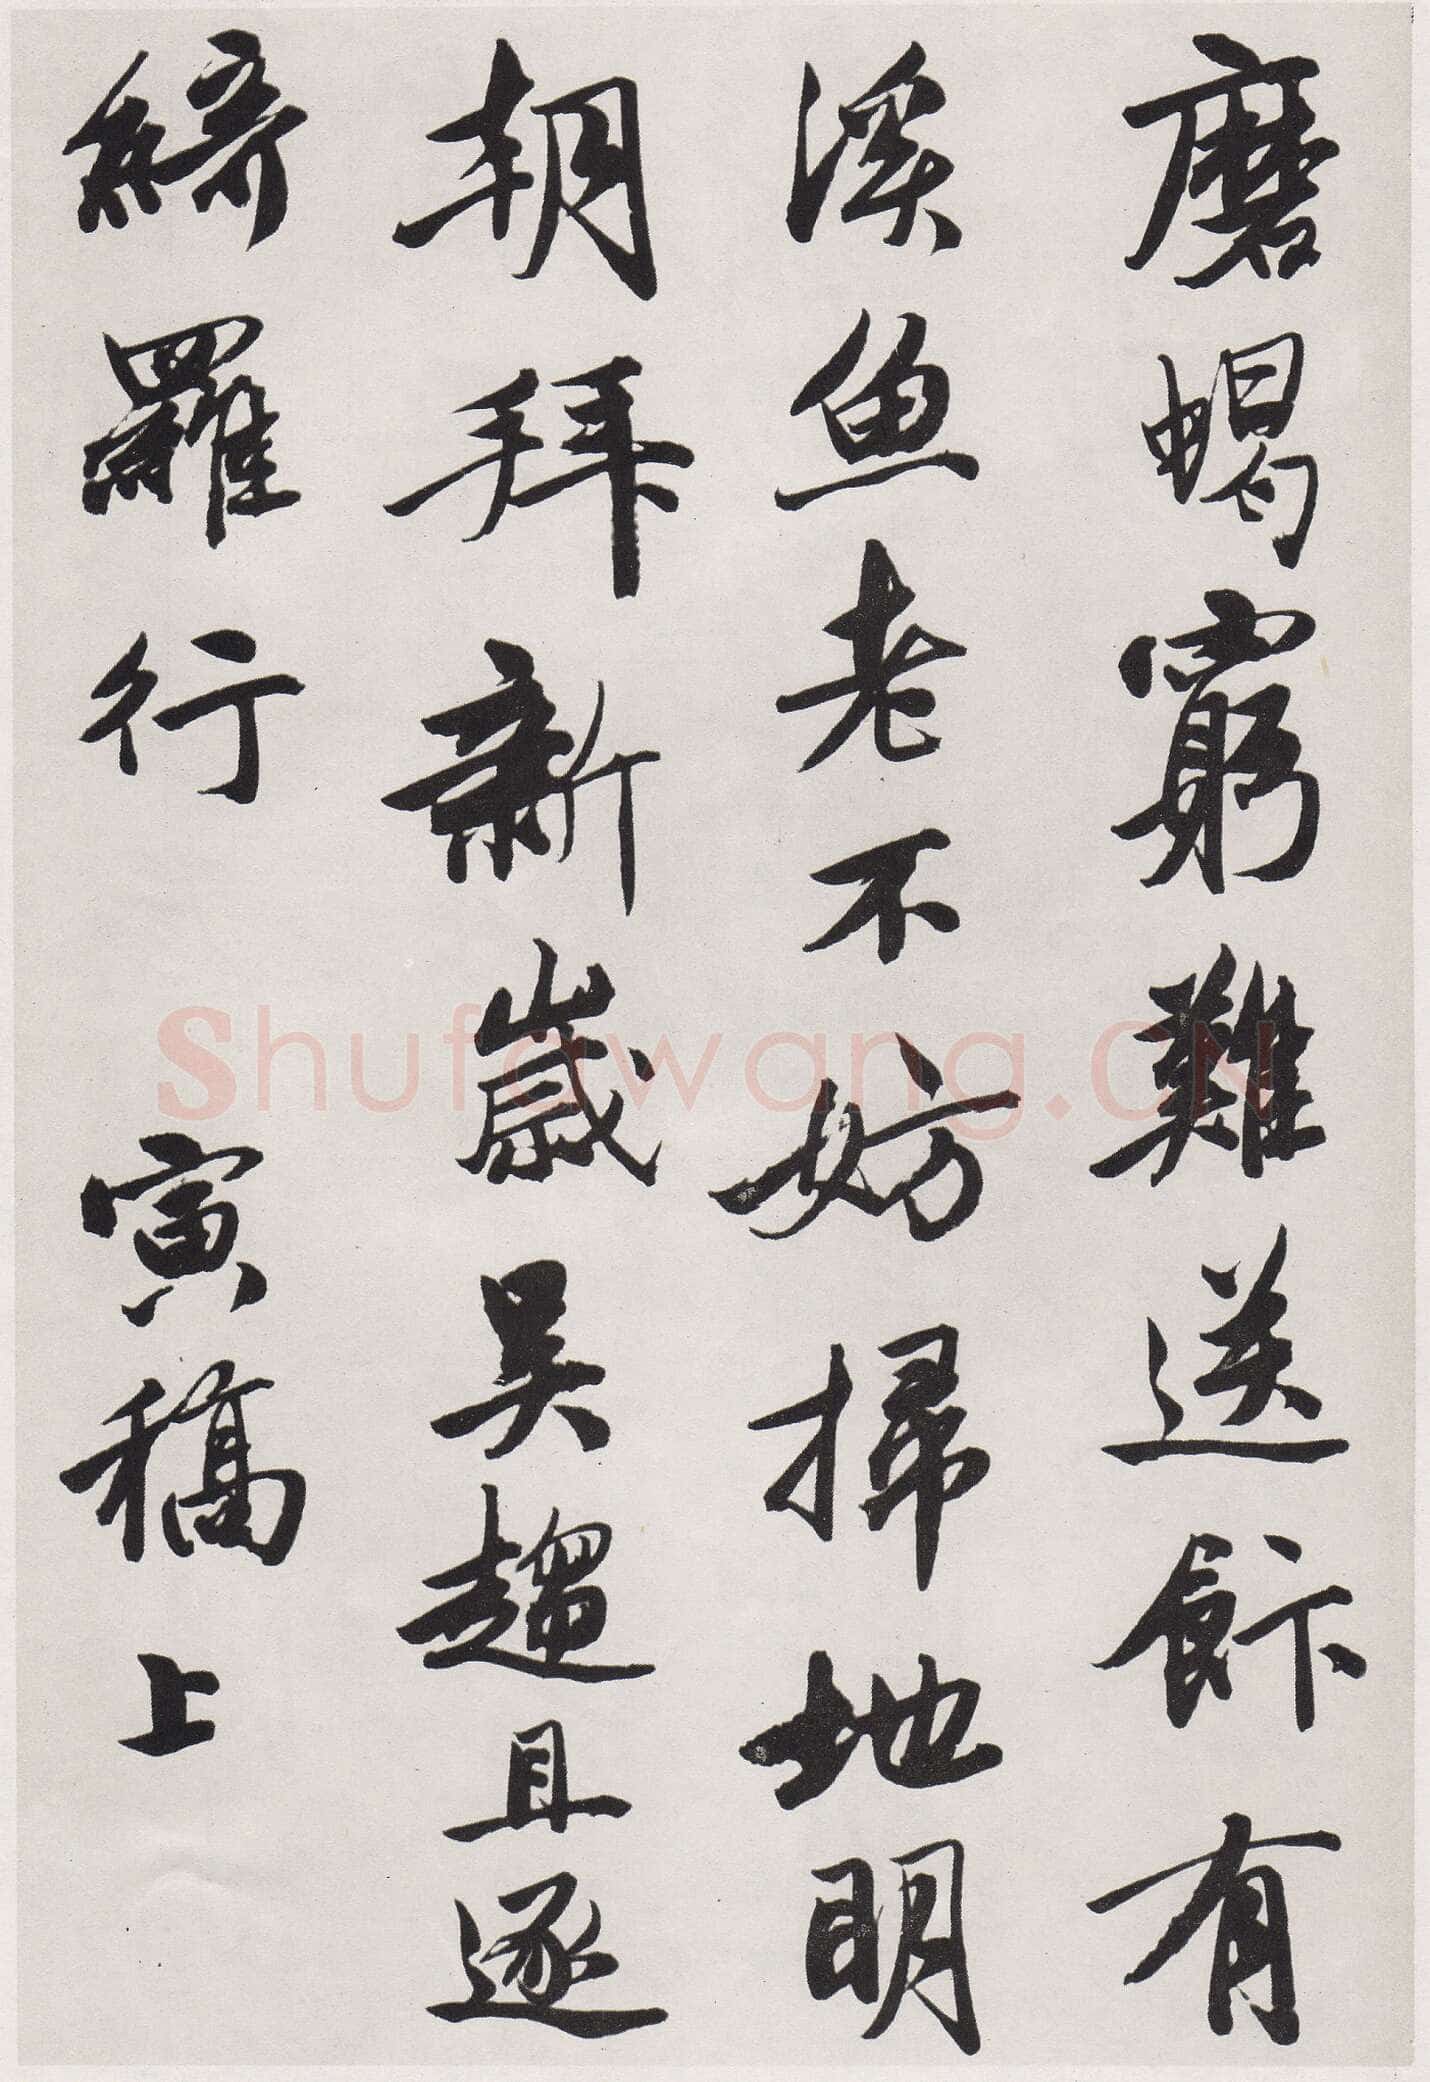 磨蝎窮難送飰有
溪魚老不妨掃地明
朝拜新歲吴趨且逐
綺羅行 寅稿上
Shufawang.CN